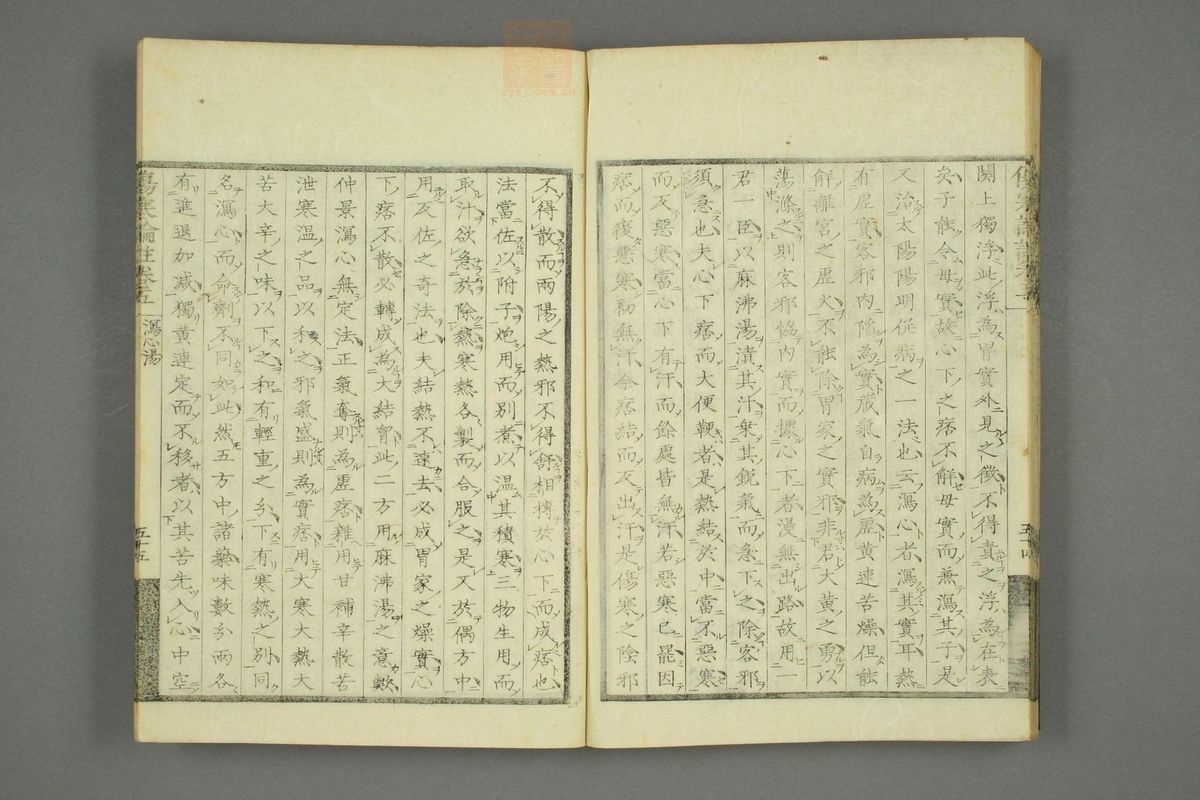 關上獨浮此浮為胃實外見之徵不得責之浮為在表
矣子能令母實故心下之痞不解母實而兼瀉其子是
又治太陽陽明併病之一法也云瀉心者瀉其實耳熱
有虛實客邪內隱為實藏氣自病為虛黃連苦燥但能
解離宮之虛火不能除胃家之實邪非君大黃之勇以
蕩滌之則客邪協內實而據心下者漫無出路故用一
君一臣以麻沸湯漬其汁乗其銳氣而急下之除客邪
須急也夫心下痞而大便鞕者是熱結於中當不惡寒
而反惡寒當心下有汗而餘處皆無汗若惡寒已罷因
痞而復惡寒初無汗今痞結而反出汗是傷寒之陰邪
不得散而兩陽之熱邪不得舒相搏於心下而成痞也
法當佐以附子炮用而別煮以溫其積寒三物生用而
取汁欲急於除熱寒熱各製而合服之是又於偶方中
用反佐之奇法也夫結熱不速去必成胃家之燥實心
下痞不散必轉成為大結胷此二方用麻沸湯之意歟
仲景瀉心無定法正氣奪則為虛痞雜用甘補辛散苦
泄寒溫之品以和之邪氣盛則為實痞用大寒大熱大
苦大辛之味以下之和有輕重之分下有寒熱之別同
名瀉心而命劑不同如此然五方中諸藥味數分兩各
有進退加減獨黃連定而不移者以其苦先入心中空
傷寒論註卷五
瀉心湯
五十五
zysj.com.cn